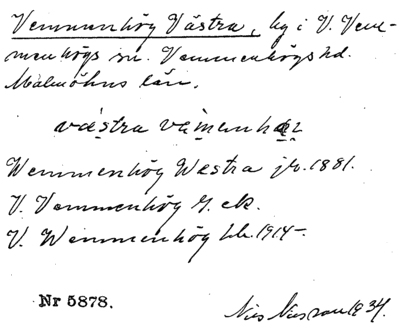 Vemmenhög Västra, by i V. Vem-
menhögs sn. Vemmenhögs hd.
Malmöhus län.
västra vämenhöz
Wemmenhög Westra jr. 1881.
V. Vemmenhög G. ek.
V. Wemmenhög bl. 1914-.
Nr 5878.
Nils Nilsson 1934.